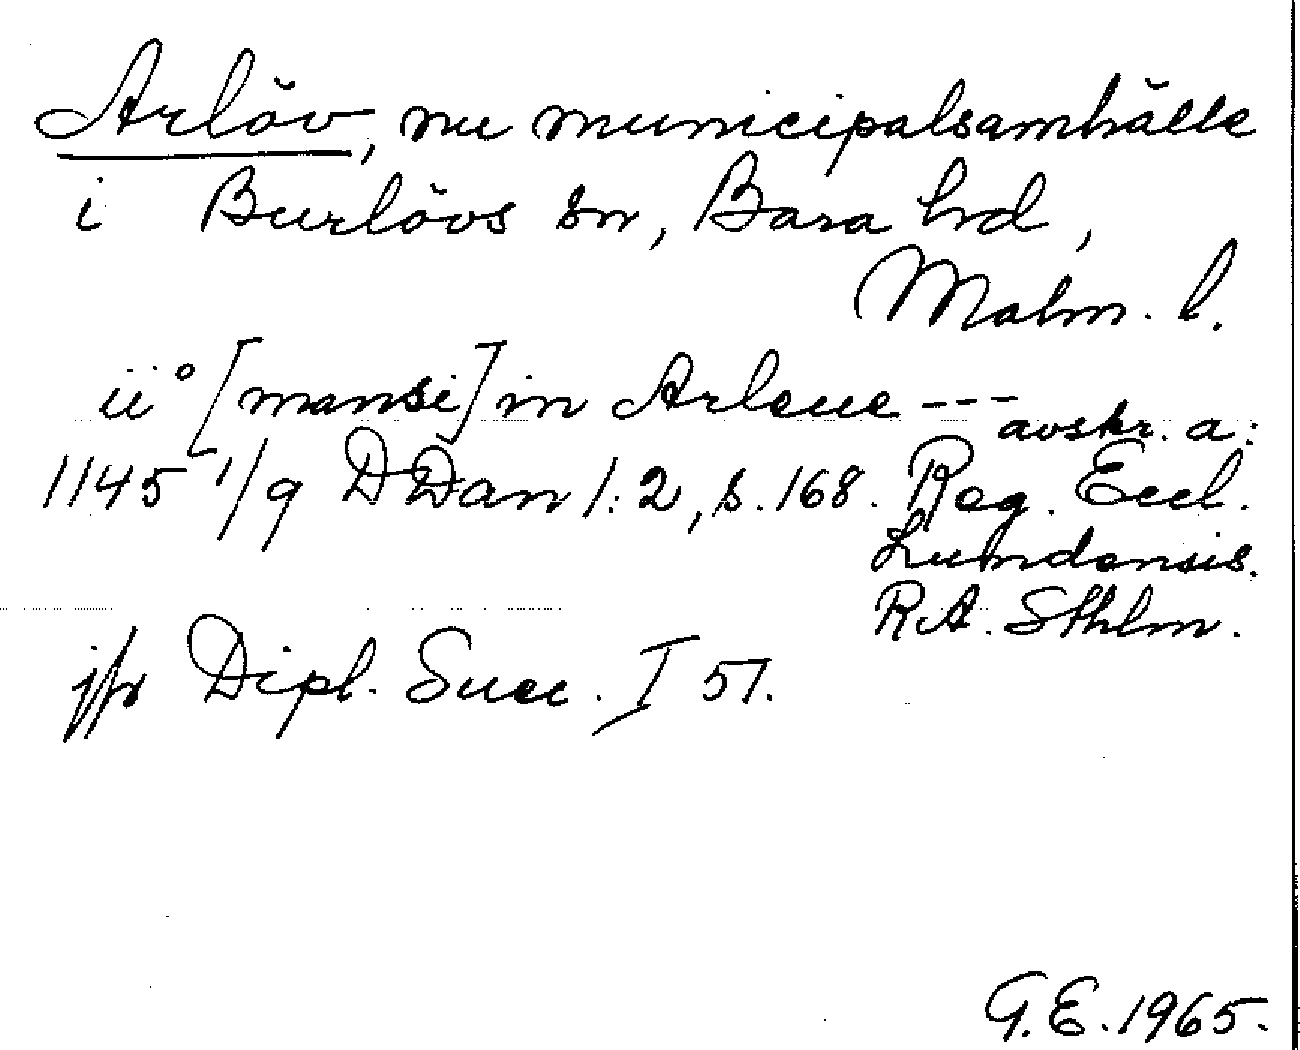 Arlöv, nu municipalsamhälle
i Burlövs sn, Bara hd,
Malm. l.
ii° [mansi] in Arleue --- avskr. a:
1145 1/9 DDan 1:2, s. 168. Reg. Eccl.
Lundensis.
RA. Sthlm.
jfr Dipl. Suec. I 51.
G.E. 1965.